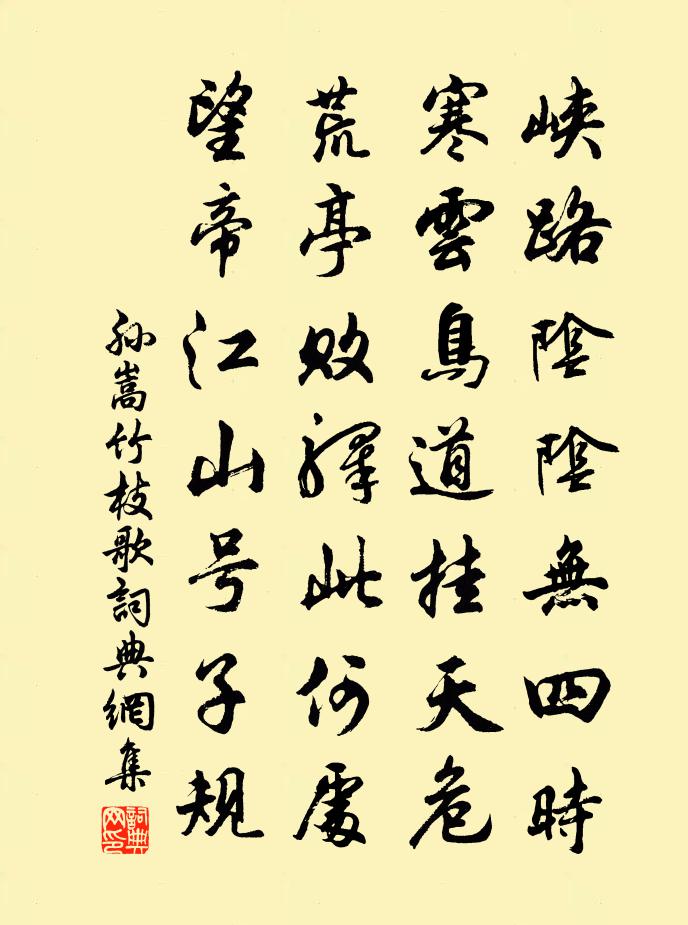 峽路陰陰無四時
寒雲鳥道挂天危
荒亭敗驛此何處
望帝江山号子規
孫嵩竹枝歌詞典網集
詞典網印